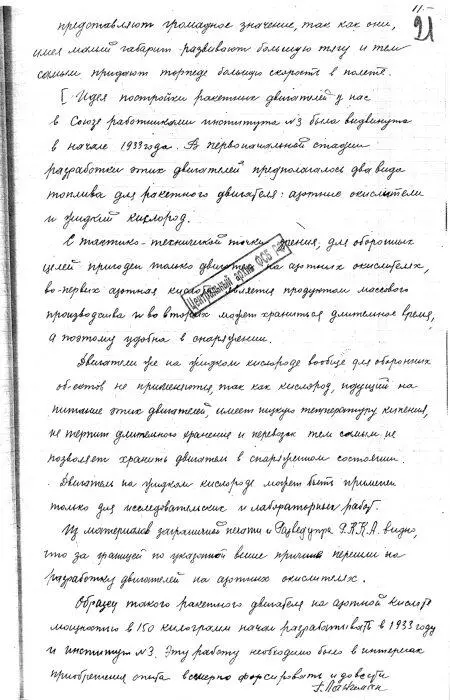 11.
21
представляют громадное значение, так как они,
имея малый габарит развивают большую тягу и тем
самым придают торпеде большую скорость в полете.
[ Идея постройки ракетных двигателей у нас
в Союзе работниками института №3 была выдвинута
в начале 1933 года. В первоначальной стадии
разработки этих двигателей предполагалось два вида
топлива для ракетного двигателя: азотные окислители
и жидкий кислород.
С тактико-технической точки зрения, для оборонных
целей пригоден только двигатель на азотных окислителях,
во-первых азотная кислота является продуктом массового
производства и во вторых может храниться длительное время,
а поэтому удобна в снаряжении.
Центральный архив ФСБ РФ
Двигатели же на жидком кислороде вообще для оборонных
об-ектов не применяются, так как кислород, идущий на
питание этих двигателей, имеет низкую температуру кипения,
не терпит длительного хранения и перевозок тем самым не
позволяет хранить двигатели в снаряженном состоянии.
Двигатели на жидком кислороде может быть применен
только для исследовательских и лабораторных работ.
Из материалов заграничной печати и Разведупра Р.К.К.А. видно,
что за границей по указанной выше причине перешли на
разработку двигателей на азотных окислителях.
Образец такого ракетного двигателя на азотной кислоте
мощностью в 150 килограмм начал разрабатывать в 1933 году
и институт №3. Эту работу необходимо было в интересах
приобретения опыта всемерно форсировать и довести
Г. Лангемак